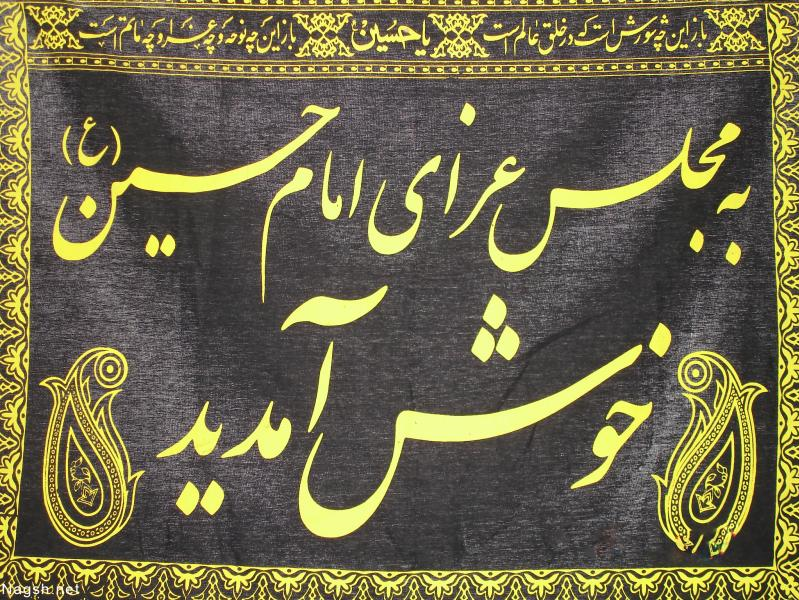 باز این چه شورش است که در خلق عالم است یا حسین باز این چه نوحه و چه عزا و چه ماتم است
به مجلس عزای امام حسین (ع)
خوش آمدید
Nagsh.net